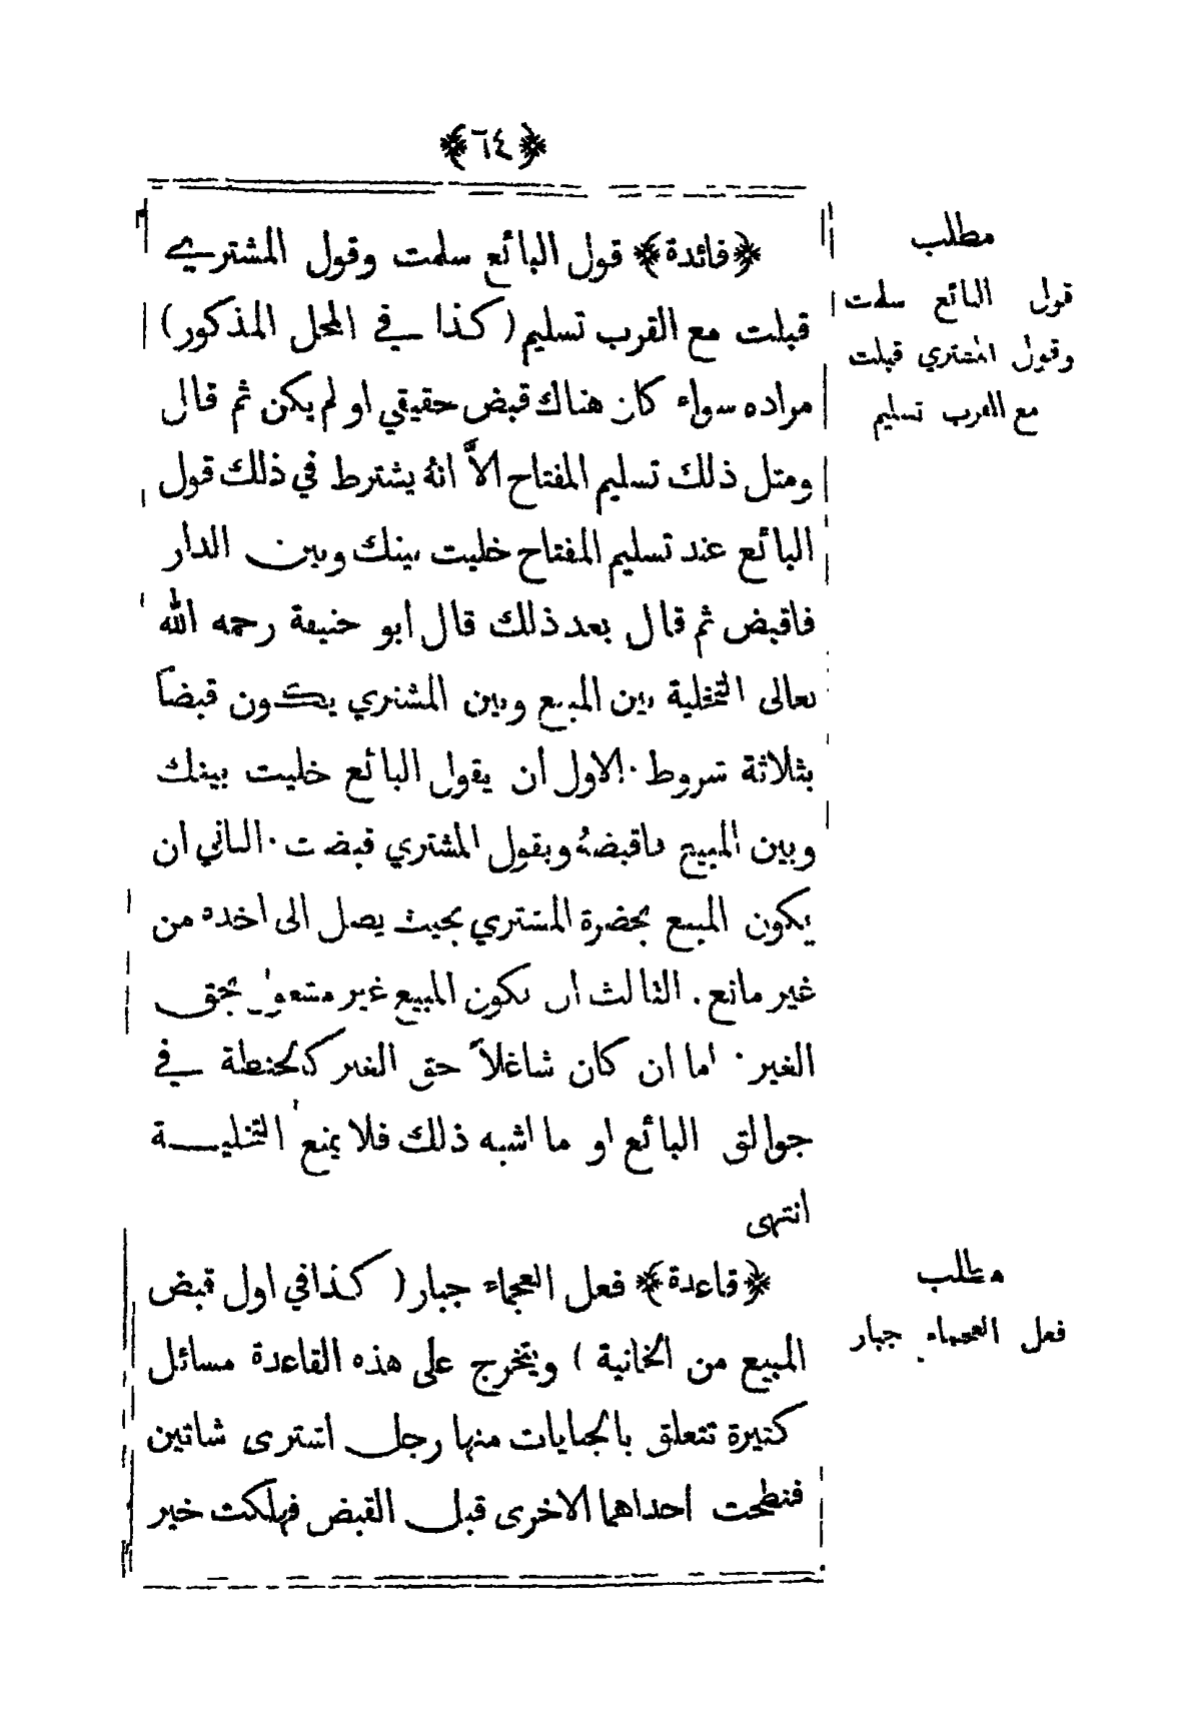 ﴿٦٤﴾
﴿فائدة﴾ قول البائع سلمت وقول المشتري
قبلت مع القرب تسليم (كذا في المحل المذكور)
مراده سواء كان هناك قبض حقيقي او لم يكن ثم قال
ومثل ذلك تسليم المفتاح الاَّ انهُ يشترط في ذلك قول
البائع عند تسليم المفتاح خليت بينك وبين الدار
فاقبض ثم قال بعد ذلك قال ابو حنيفة رحمه الله
تعالى التخلية بين المبيع وبين المشتري يكون قبضاً
بثلاثة شروط . الاول ان يقول البائع خليت بينك
وبين المبيع فاقبضهُ ويقول المشتري قبضت . الثاني ان
يكون المبيع بحضرة المشتري بحيث يصل الى اخذه من
غير مانع . الثالث ان يكون المبيع غير مشغول بحق
الغير . اما ان كان شاغلاً حق الغير كالحنطة في
جوالق البائع او ما اشبه ذلك فلا يمنع التخلية
انتهى
﴿قاعدة﴾ فعل العجماء جبار (كذا في اول قبض
المبيع من الخانية) ويتخرج على هذه القاعدة مسائل
كثيرة تتعلق بالجنايات منها رجل اشترى شاتين
فنطحت احداهما الاخرى قبل القبض فهلكت خير
مطلب
قول البائع سلمت
وقول المشتري قبلت
مع القرب تسليم
مطلب
فعل العجماء جبار